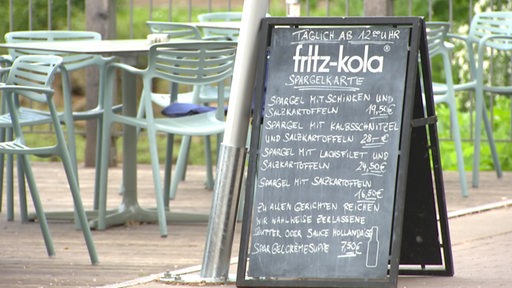 TÄGLICH AB 12:00 UHR
fritz-kola®
SPARGELKARTE
SPARGEL MIT SCHINKEN UND
SALZKARTOFFELN 19,50€
SPARGEL MIT KALBSSCHNITZEL
UND SALZKARTOFFELN 28,-€
SPARGEL MIT LACHSFILET UND
SALZKARTOFFELN 24,50€
SPARGEL MIT SALZKARTOFFELN
16,50€
ZU ALLEN GERICHTEN REICHEN
WIR WAHLWEISE ZERLASSENE
BUTTER ODER SAUCE HOLLANDAISE
SPARGELCRÈMESUPPE 7,50€